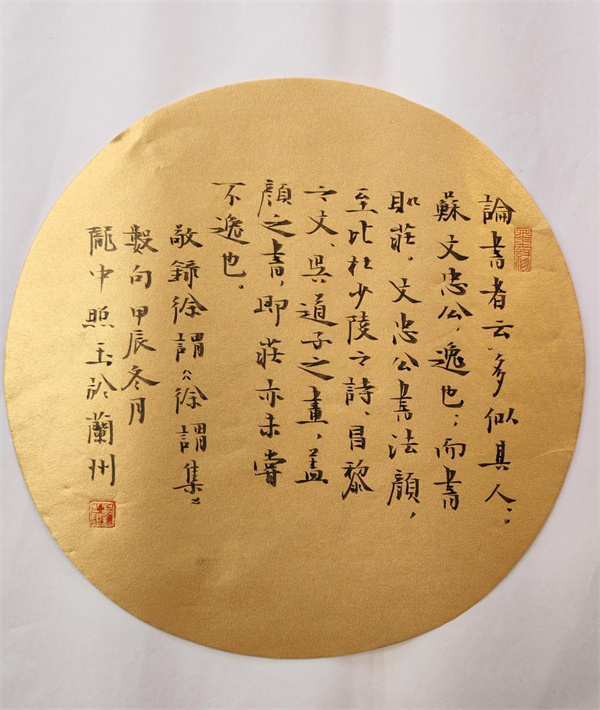 論書者云"多似其人"：
蘇文忠公，逸也；而書
即莊。文忠公書法顏，
至比杜少陵之詩、昌黎
之文、吳道子之畫，蓋
顏之書，即莊亦未嘗
不逸也。
敬錄徐謂《徐謂集》
數句 甲辰冬月
龐中照玉於蘭州